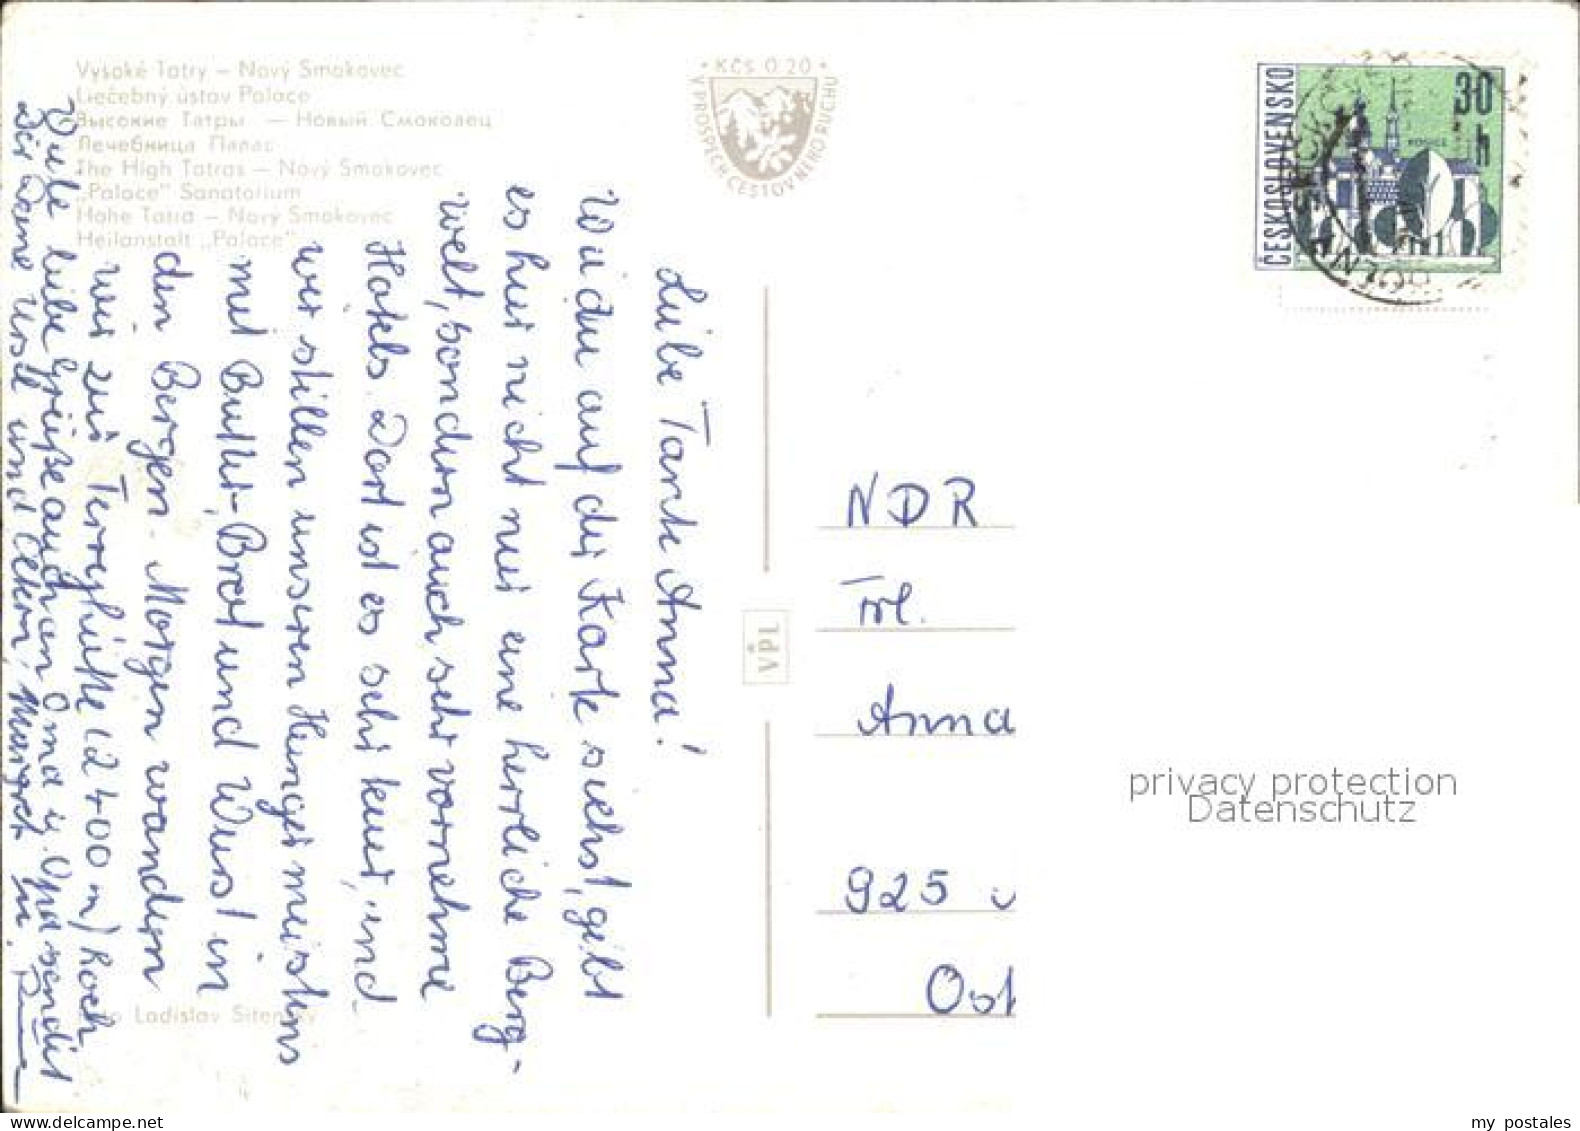 Vysoké Tatry – Nový Smokovec
Liečebný ústav Palace
Высокие Татры — Новый Смоковец
Лечебница Палас
The High Tatras – Nový Smokovec
„Palace" Sanatorium
Hohe Tatra – Nový Smokovec
Heilanstalt „Palace"
· KČS 0.20 ·
V PROSPĚCH CESTOVNÉHO RUCHU
ČESKOSLOVENSKO
30
h
Liebe Tante Anna!
Wie du auf der Karte siehst, gibt
es hier nicht nur eine herrliche Berg-
welt, sondern auch sehr vornehme
Hotels. Dort ist es sehr teuer, und
wir stillen unseren Hunger meistens
mit Butter, Brot und Wurst in
den Bergen. Morgen wandern
wir zur Terryhütte (2400 m) hoch
Viele liebe Grüße auch an Oma u. Opa sendet
Dir Deine Ursel und Eltern, Margret
Foto Ladislav Sitenský
VPL
NDR
Frl.
Anna
925
Ost
privacy protection
Datenschutz
my postales